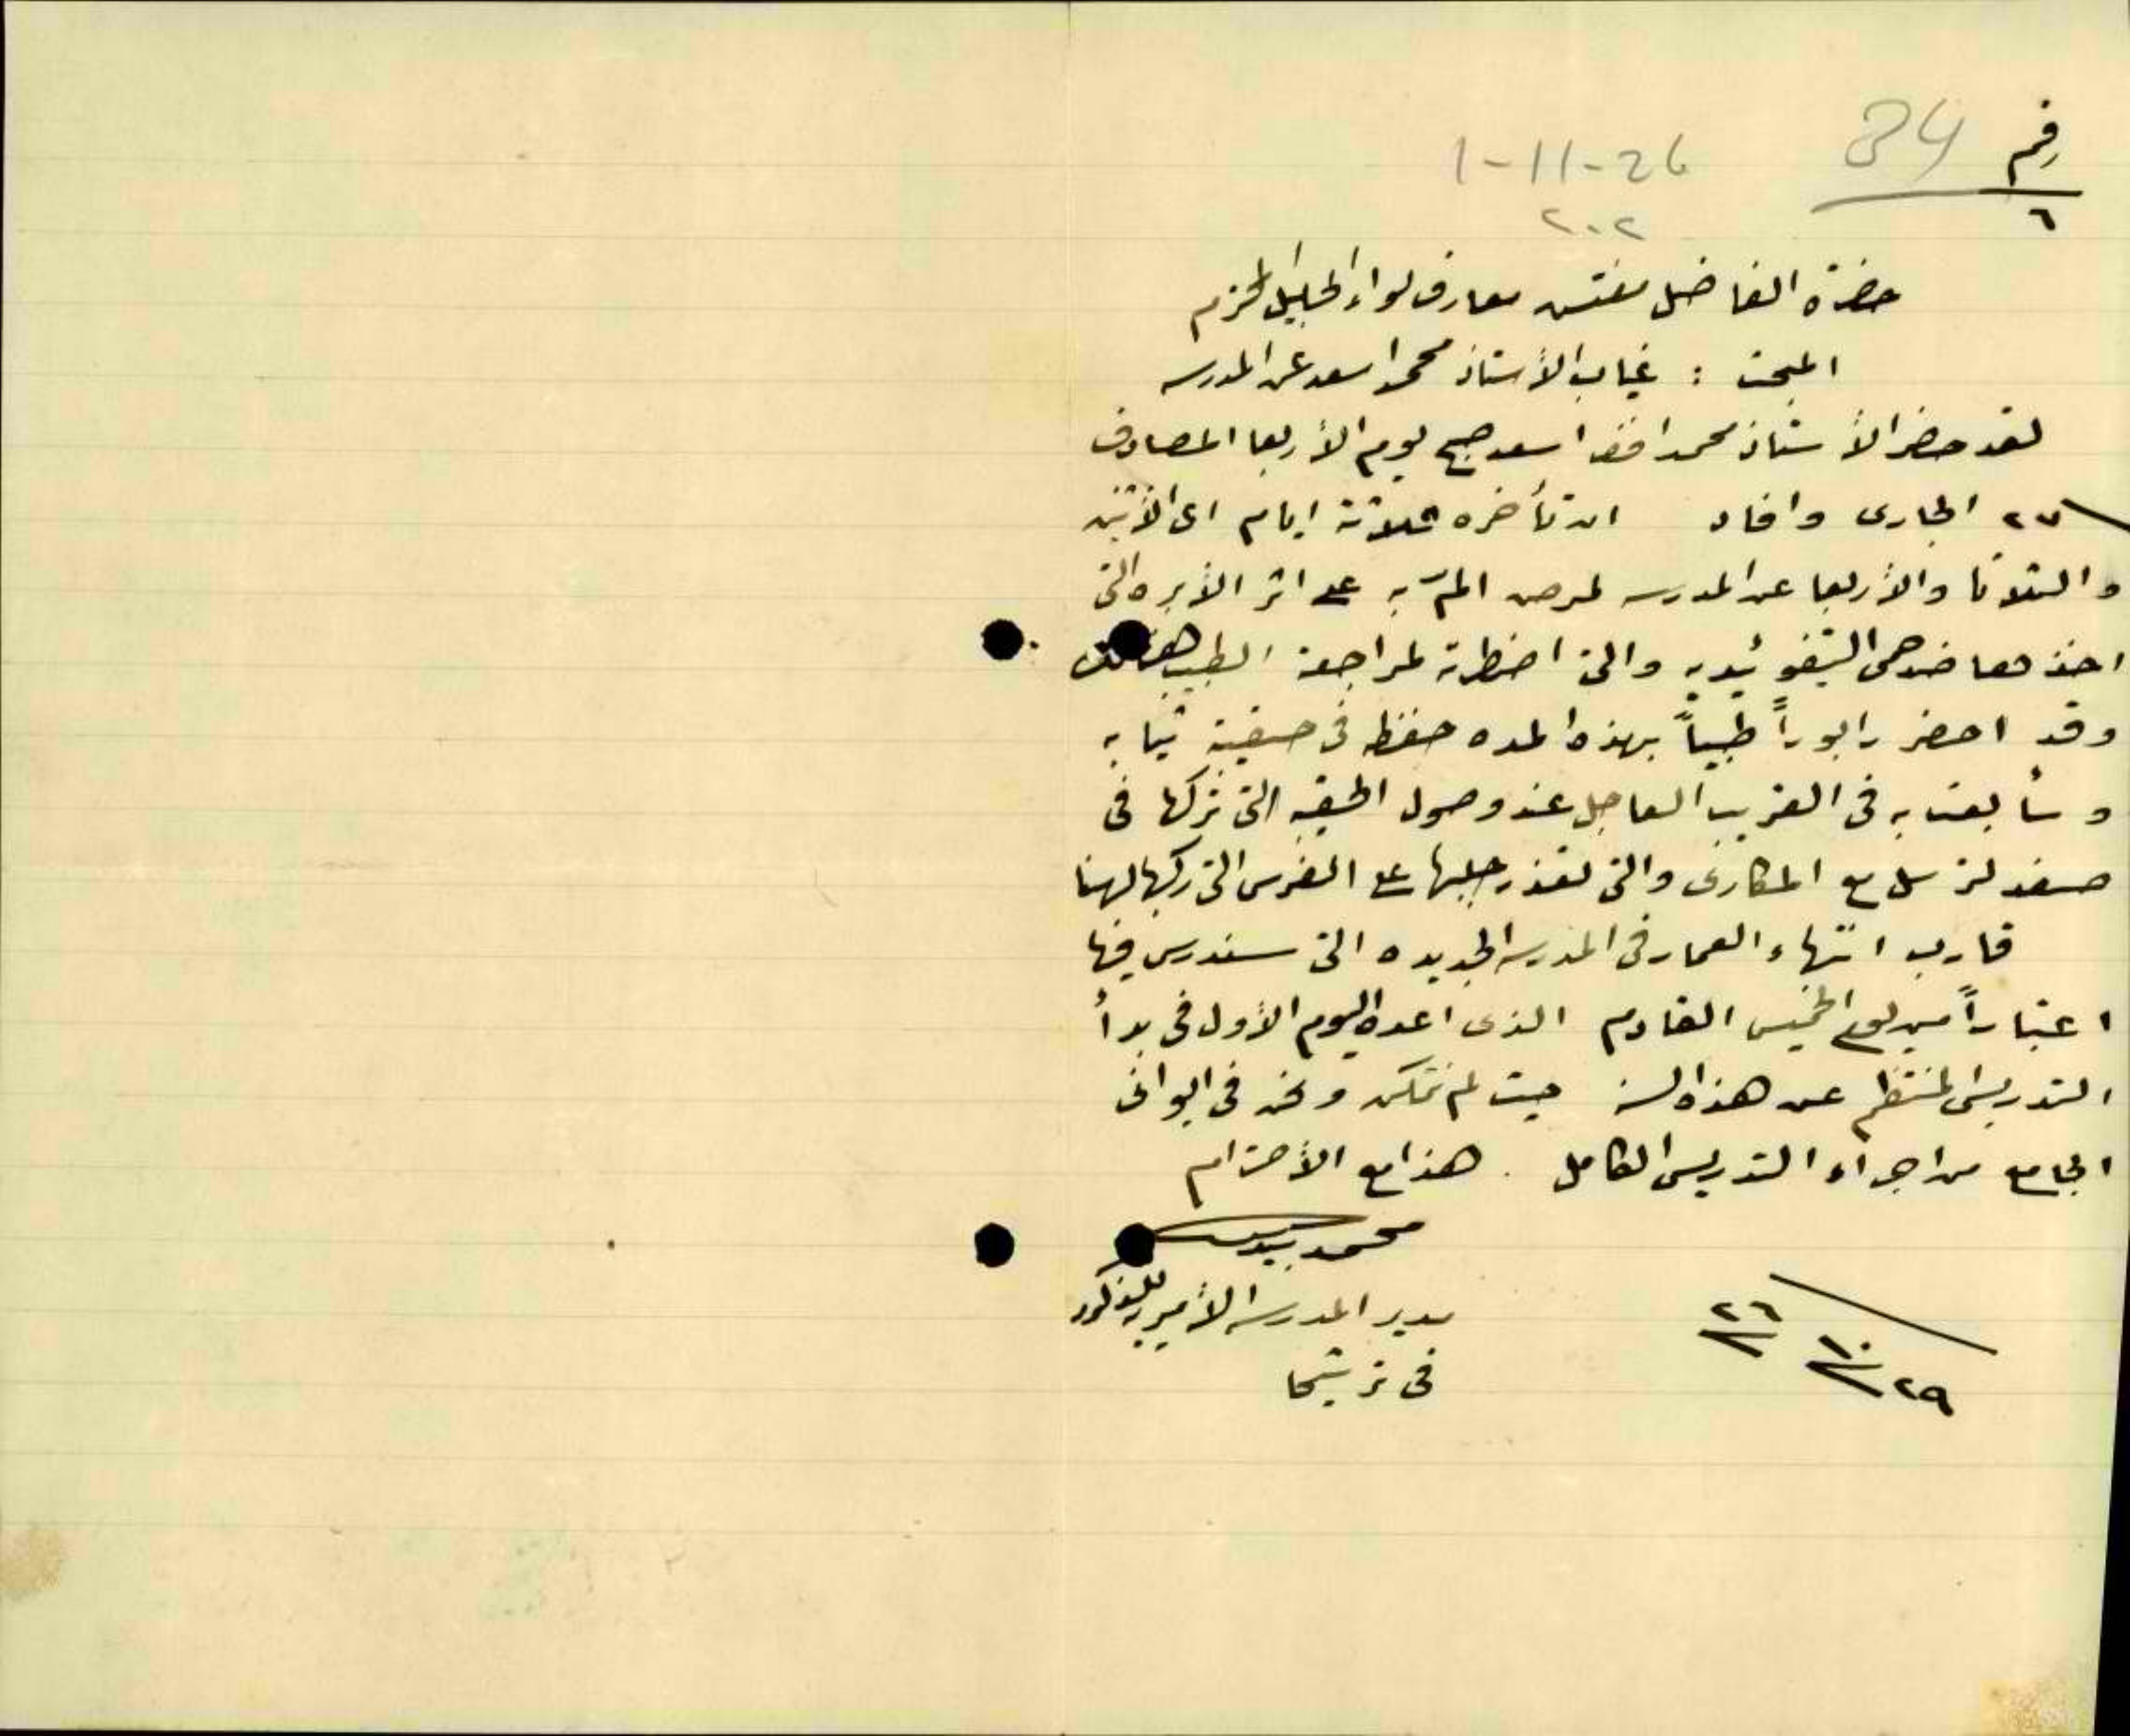 رقم 34
٦
1-11-26
٢٠٢
حضرة الفاضل مفتش معارف لواء الجليل المحترم
المبحث : غياب الأستاذ محمد اسعد عن المدرسه
لقد حضر الأستاذ محمد افندي اسعد صبح يوم الأربعا المصادف
٢٧ الجارى وافاد ان تأخره ثلاثة ايام اى الأثنين
والثلاثا والأربعا عن المدرسه لمرض المّ به على اثر الأبره التى
اخذها ضد حمى التيفوئيديه والتى اضطرته لمراجعة الطبيب هنالك
وقد احضر رابوراً طبياً بهذه المده حفظه فى حقيبة ثيابه
وسأبعث به فى القريب العاجل عند وصول الحقيبه التى تركها فى
صفد لترسل مع المكارى والتى تعذر جلبها على الفرس التى ركبها لهنا
قارب انتهاء العمار فى المدرسه الجديده التى سندرس فيها
اعتباراً من يوم الخميس القادم الذى اعده اليوم الأول فى بدأ
التدريس المنتظم عن هذه السنه حيث لم نتمكن ونحن فى ايوانى
الجامع من اجراء التدريس الكامل . هذا مع الأحترام
محمد
مدير المدرسه الأميريه للذكور
فى ترشيحا
٢٩/١٠/٢٦